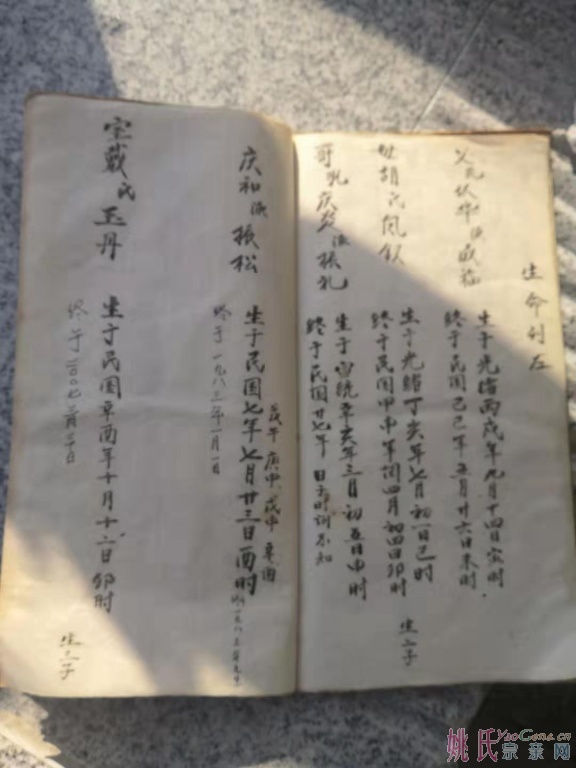 生命列左
生于光绪丙戌年九月十四日寅时
终于民国己巳年五月廿六日未时
母胡氏凤
生于光绪丁亥年七月初一日巳时
终于民国甲申年闰四月初四日卯时
生二子
哥乳庆 派振礼
生于宣统辛亥年三月初五日申时
终于民国廿七年 日子时训不知
庆和派振松
戊午 庚申 戊申 辛酉
生于民国七年七月廿三日酉时
终于一九八三年一月一日
室戴氏玉丹
生于民国辛酉年十月十二日卯时
终于二00七
生二子
姚氏宗亲网
YaoGens.cn